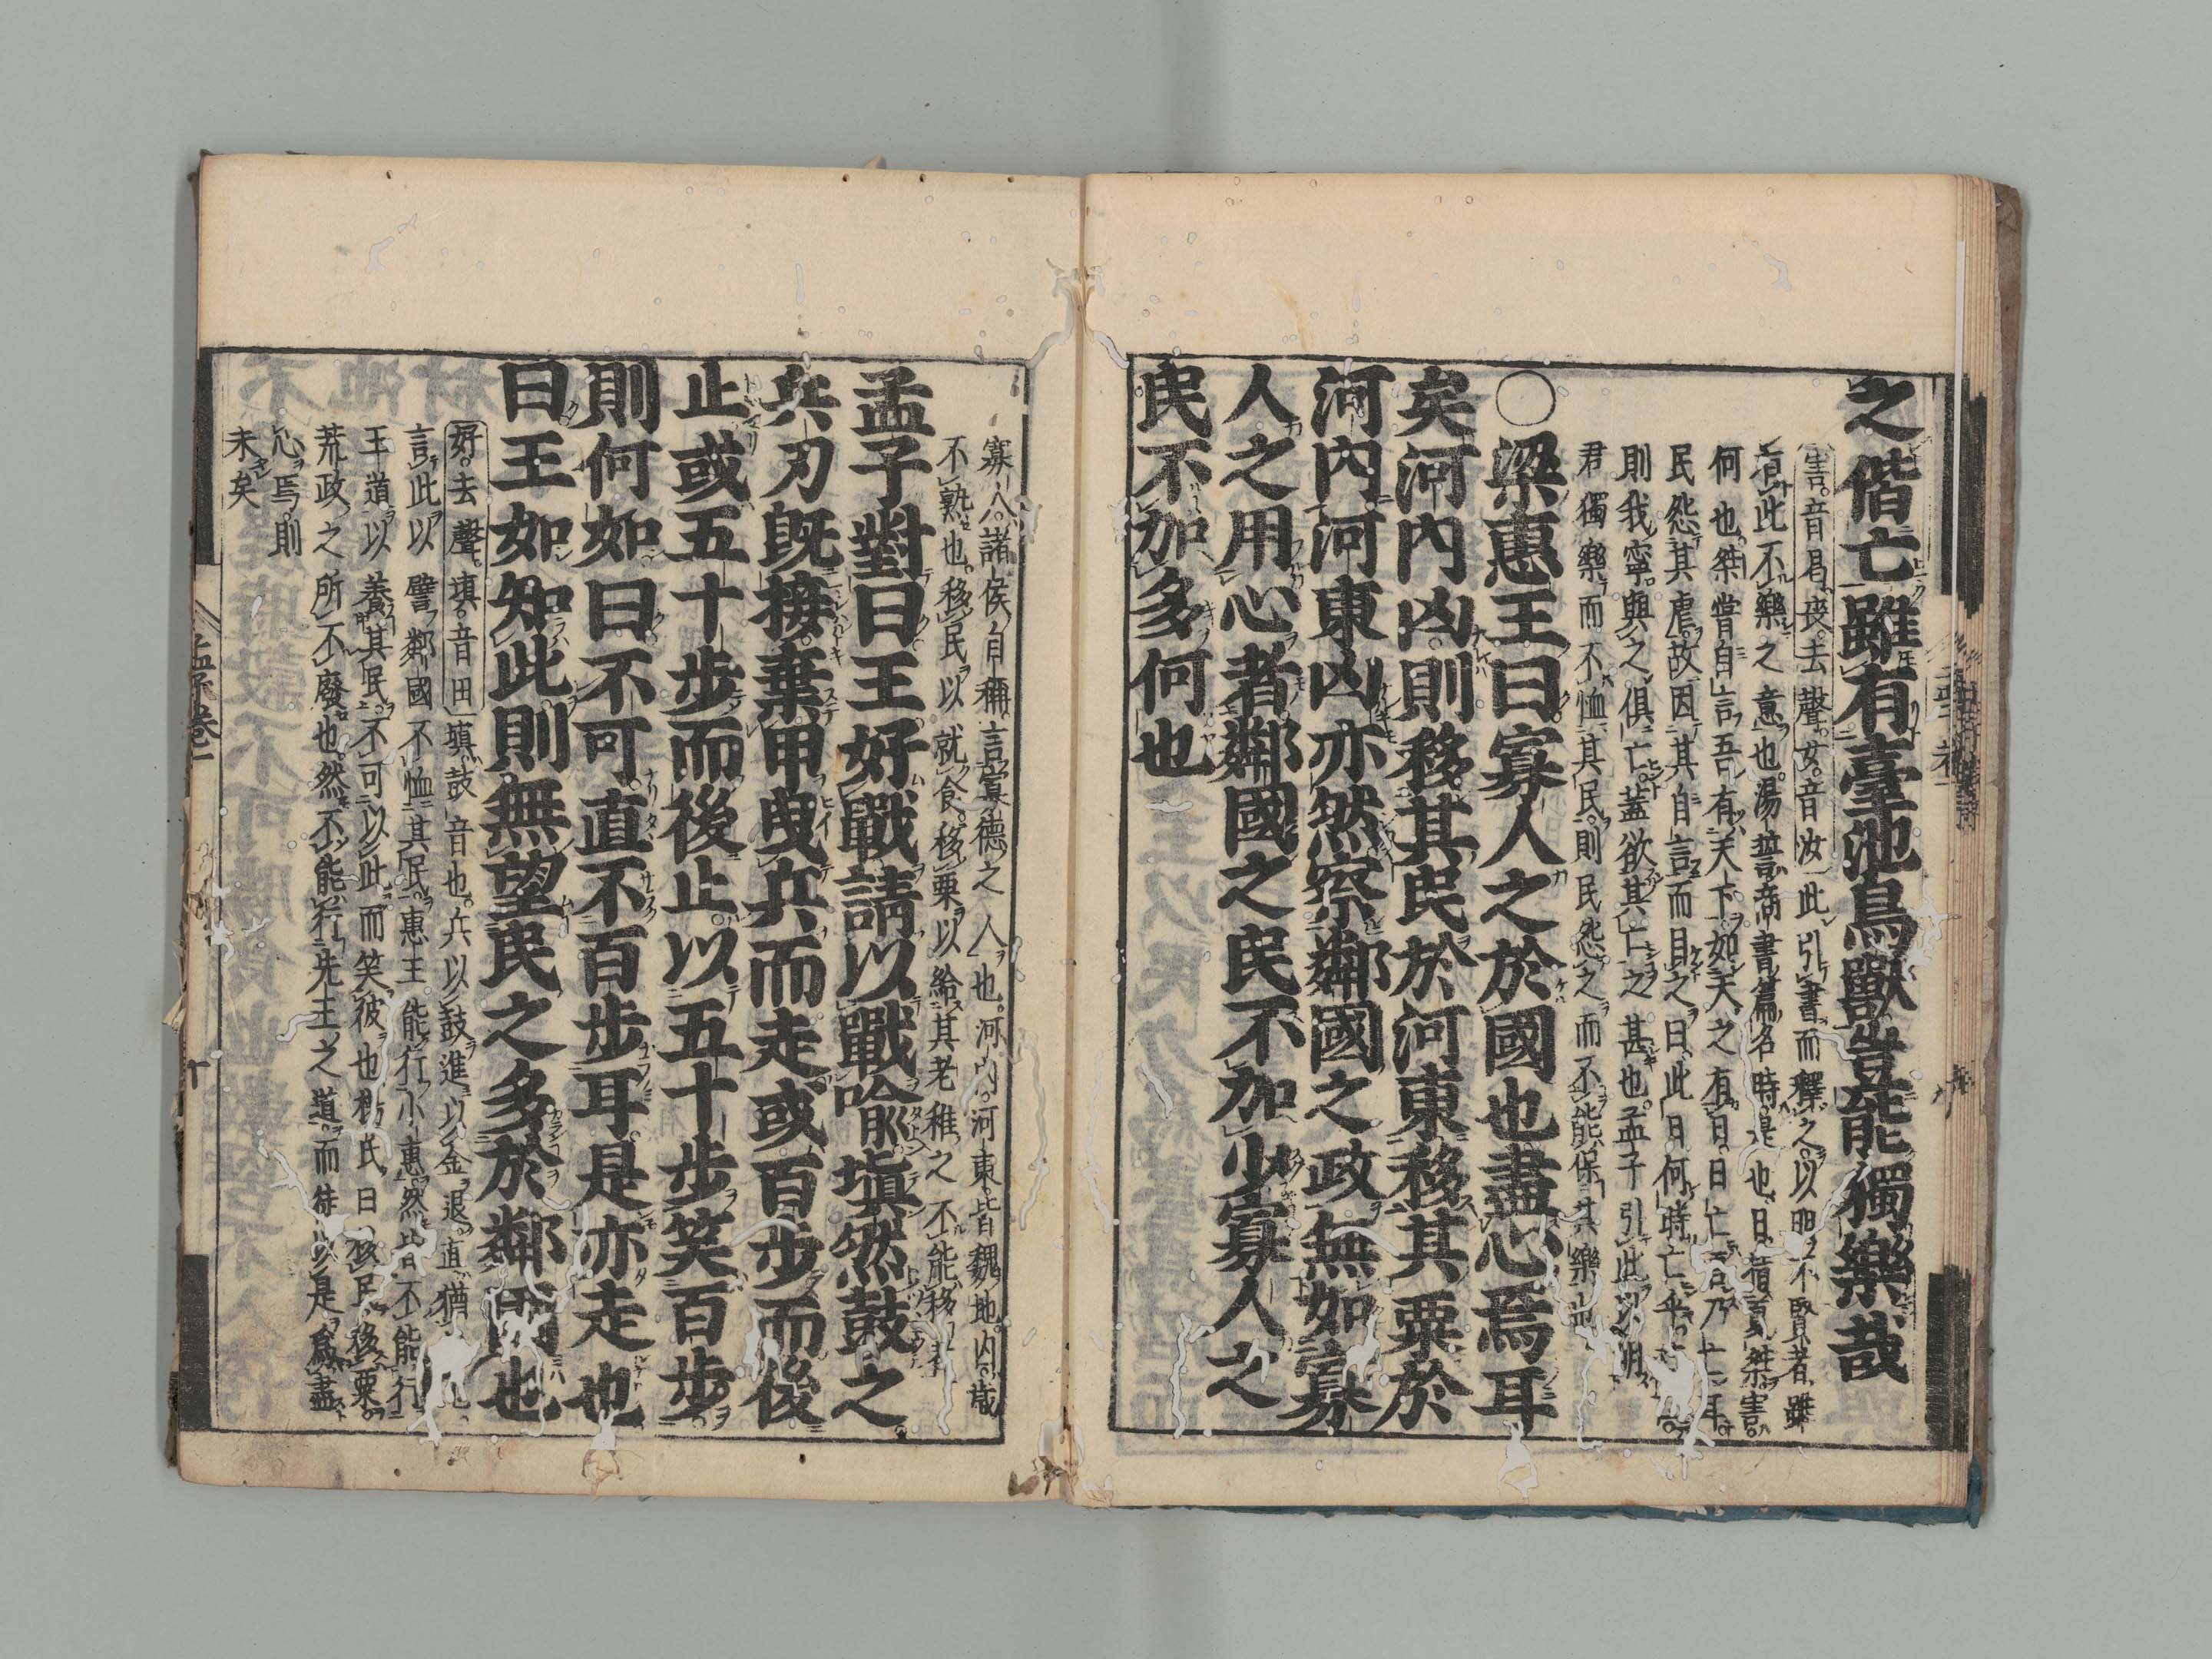 之偕亡雖有臺池鳥獸豈能獨樂哉
害。音曷。喪。去聲。女。音汝 此引書而釋之。以明不賢者雖
有此不樂之意也。湯誓商書篇名時是也。日指夏桀害。
何也。桀嘗自言吾有天下。如天之有日。日亡吾乃亡耳。
民怨其虐。故因其自言而目之曰。此日何時亡乎
則我寧與之俱亡。蓋欲其亡之甚也。孟子引此以明
君獨樂而不恤其民。則民怨之而不能保其樂也
○梁惠王曰寡人之於國也盡心焉耳
矣河內凶則移其民於河東移其粟於
河內河東凶亦然察鄰國之政無如寡
人之用心者鄰國之民不加少寡人之
民不加多何也
寡人。諸侯自稱。言寡德之人也。河內。河東。皆魏地。凶。歲
不熟也。移民以就食。移粟以給其老稚之不能移者
孟子對曰王好戰請以戰喻塡然鼓之
兵刃旣接棄甲曳兵而走或百步而後
止或五十步而後止以五十步笑百步
則何如曰不可直不百步耳是亦走也
曰王如知此則無望民之多於鄰國也
好。去聲。塡。音田 塡。鼓音也。兵以鼓進以金退。直猶也。
言此以譬鄰國不恤其民。惠王能行小惠。然皆不能行
王道以養其民。不可以此而笑彼也楊氏曰移民移粟。
荒政之所不廢也。然不能行先王之道。而徒以是爲盡
心焉。則
未矣
孟子卷一
十